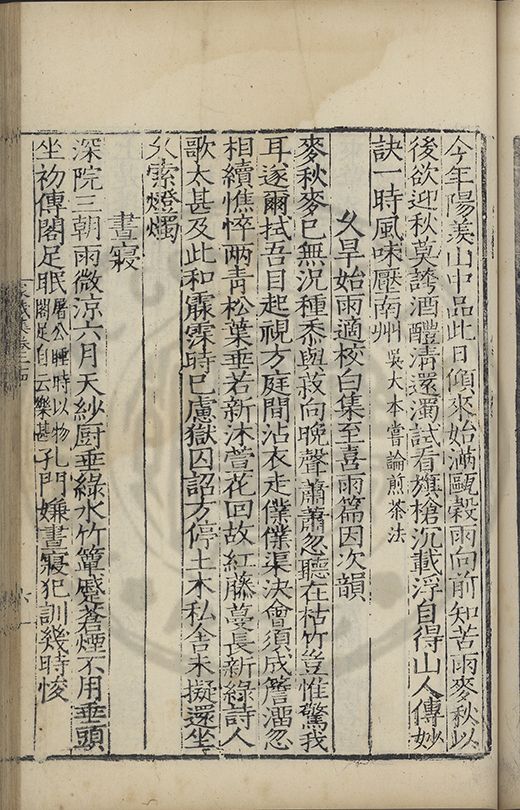 今年陽羨山中品此日傾來始滿甌穀雨向前知苦雨麥秋以
後欲迎秋莫誇酒醴清還濁試看旗槍沉載浮自得山人傳妙
訣一時風味壓南州 吳大本嘗論煎茶法
久旱始雨適校白集至喜雨篇因次韻
麥秋麥已無況種黍與菽向晚聲蕭蕭忽聽在枯竹豈惟驚我
耳遂爾拭吾目起視方庭間沾衣走僕僕渠決會須成簷溜忽
相續憔悴兩青松葉垂若新沐萱花回故紅藤蔓長新綠詩人
歌太甚及此和霢霂時已慮獄囚詔方停土木私舍未擬還坐
久索燈燭
晝寢
深院三朝雨微涼六月天紗厨垂綠水竹簟蹙蒼煙不用垂頭
坐初傳閣足眠 屠公睡時以物閣足自云樂甚 孔門嫌晝寢犯訓幾時悛